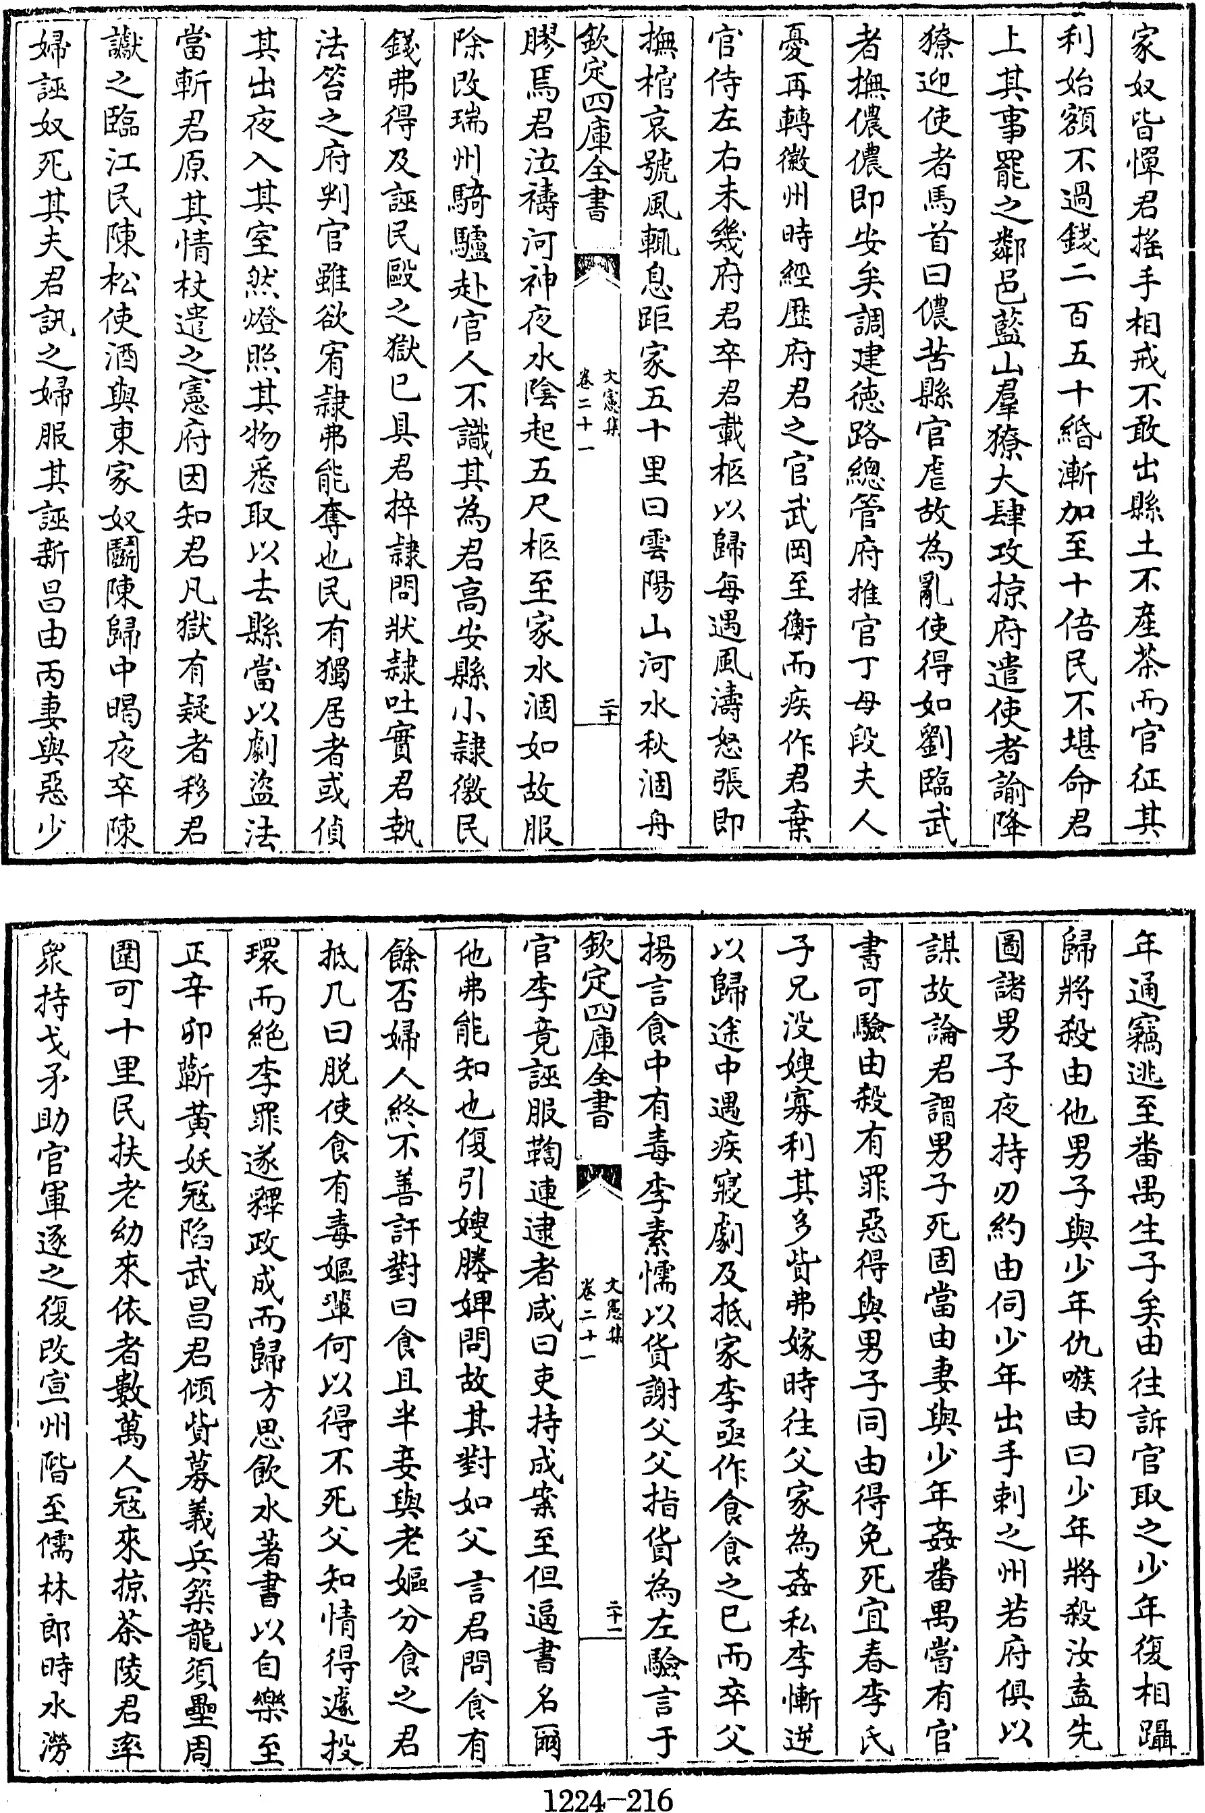 家奴皆憚君搖手相戒不敢出縣土不産茶而官征其
利始額不過錢二百五十緡漸加至十倍民不堪命君
上其事罷之鄰邑藍山羣獠大肆攻掠府遣使者諭降
獠迎使者馬首曰儂苦縣官虐故為亂使得如劉臨武
者撫儂儂即安矣調建徳路總管府推官丁母段夫人
憂再轉徽州時經歴府君之官武岡至衡而疾作君棄
官侍左右未幾府君卒君載柩以歸每遇風濤怒張即
撫棺哀號風輒息距家五十里曰雲陽山河水秋涸舟
欽定四庫全書
文憲集
卷二十一
二十
膠焉君泣禱河神夜水陰起五尺柩至家水涸如故服
除改瑞州騎驢赴官人不識其為君髙安縣小隷徼民
錢弗得及誣民毆之獄已具君捽隷問狀隷吐實君執
法笞之府判官雖欲宥隷弗能奪也民有獨居者或偵
其出夜入其室然燈照其物悉取以去縣當以劇盜法
當斬君原其情杖遣之憲府因知君凡獄有疑者移君
讞之臨江民陳松使酒與東家奴鬬陳歸中暍夜卒陳
婦誣奴死其夫君訊之婦服其誣新昌由丙妻與惡少
年通竊逃至畨禺生子矣由往訴官取之少年復相躡
歸將殺由他男子與少年仇嗾由曰少年將殺汝盍先
圖諸男子夜持刃約由伺少年出手刺之州若府俱以
謀故論君謂男子死固當由妻與少年姦畨禺當有官
書可驗由殺有罪惡得與男子同由得免死宜春李氏
子兄没嫂寡利其多貲弗嫁時往父家為姦私李慚逆
以歸途中遇疾寖劇及抵家李亟作食食之已而卒父
揚言食中有毒李素懦以貨謝父父指貨為左驗言于
欽定四庫全書
文憲集
卷二十一
二十一
官李竟誣服鞫連逮者咸曰吏持成案至但逼書名爾
他弗能知也復引嫂媵婢問故其對如父言君問食有
餘否婦人終不善訐對曰食且半妾與老嫗分食之君
抵几曰脱使食有毒嫗輩何以得不死父知情得遽投
環而絶李罪遂釋政成而歸方思飲水著書以自樂至
正辛卯蘄黄妖冦陷武昌君傾貲募義兵築龍須壘周
圍可十里民扶老幼來依者數萬人冦來掠茶陵君率
衆持戈矛助官軍逐之復改宣州階至儒林郎時水澇
1224-216